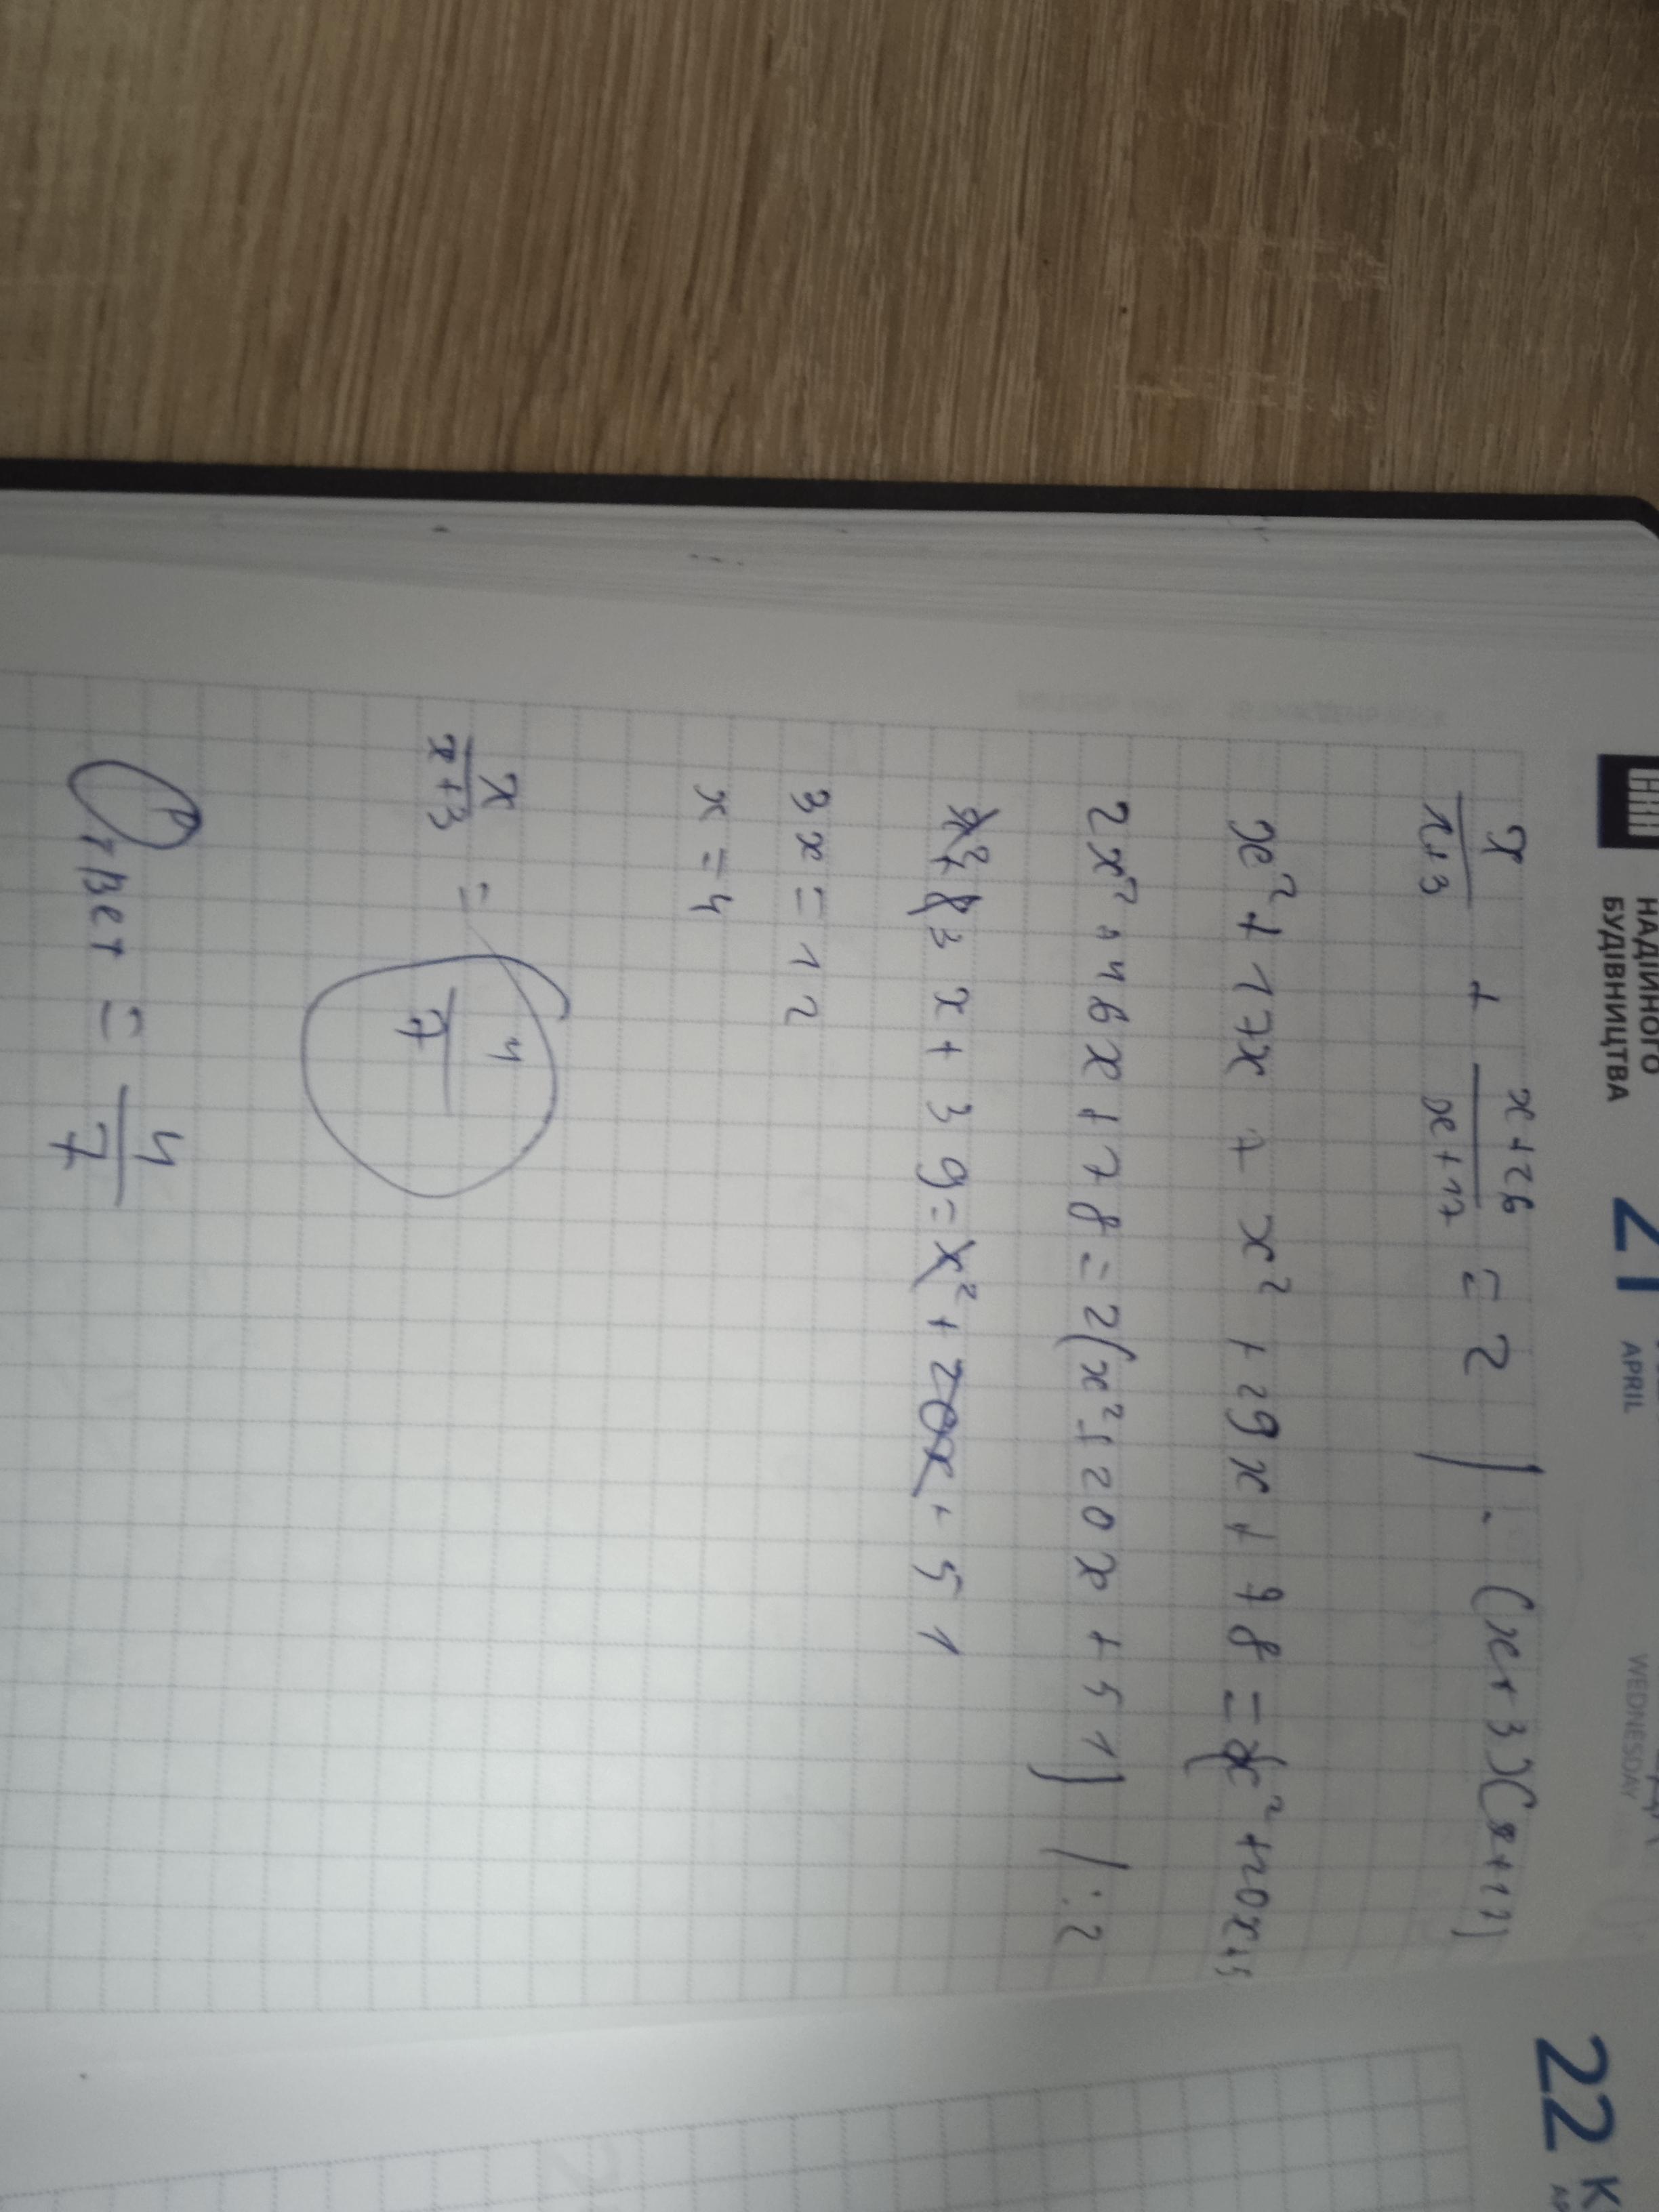 НАДІЙНОГО
БУДІВНИЦТВА
21
APRIL
WEDNESDAY
22
x/(x+3) + (x+26)/(x+17) = 2 | · (x+3)(x+17)
x² + 17x + x² + 29x + 78 = (x² + 20x + 5
2x² + 46x + 78 = 2(x² + 20x + 51) | :2
x² + 23x + 39 = x² + 20x + 51
3x = 12
x = 4
x/(x+3) = 4/7
Ответ = 4/7